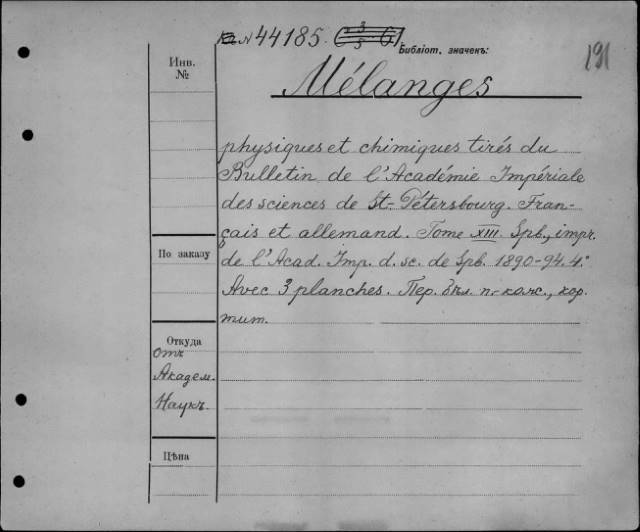 № 44185.
Библіот. значекъ:
191
Инв. №
Mélanges
physiques et chimiques tirés du
Bulletin de l'Académie Impériale
des sciences de St-Pétersbourg. Fran-
çais et allemand. Tome XIII. Spb., impr.
По заказу
de l'Acad. Imp. d. sc. de Spb. 1890-94. 4°
Avec 3 planches. Пер. п.-кож., кор.
тит.
Откуда
отъ
Академ.
Наукъ.
Цѣна